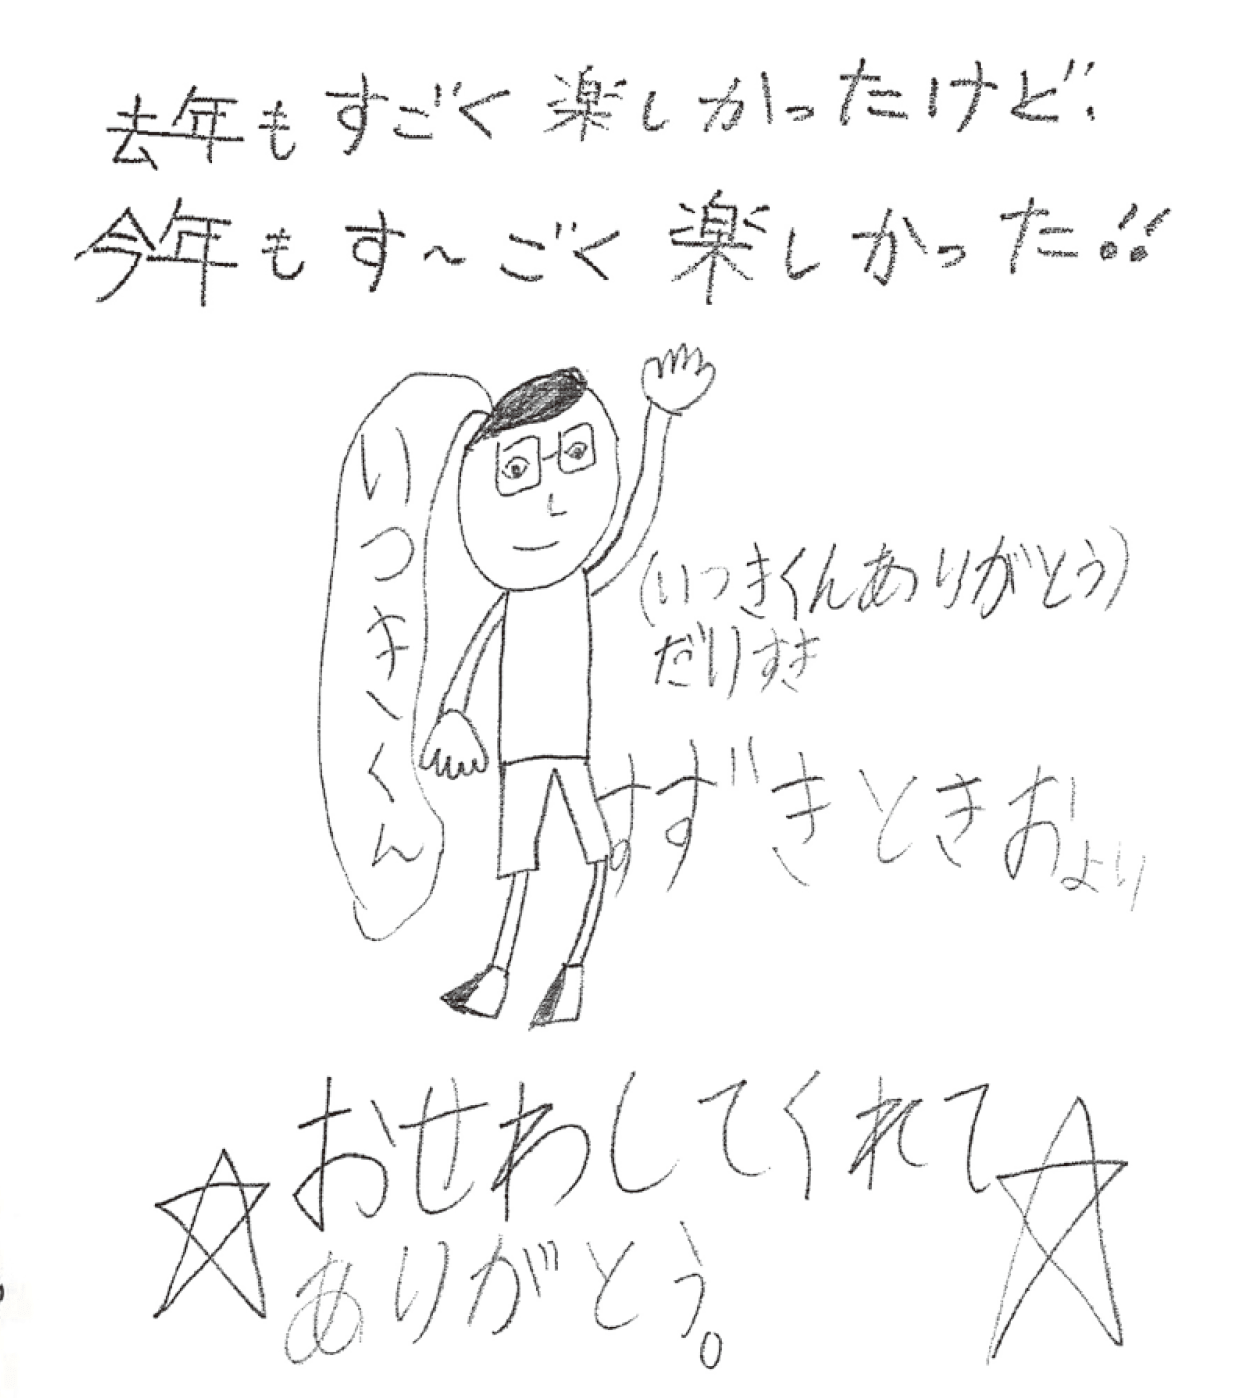 去年もすごく楽しかったけど、
今年もす~ごく楽しかった!!
いつきくん
(いつきくんありがとう)
だいすき
すずきときおより
おせわしてくれて
ありがとう。